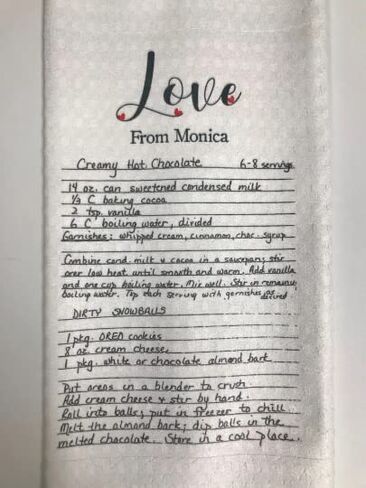 Love
From Monica
Creamy Hot Chocolate 6-8 servings
14 oz. can sweetened condensed milk
1/3 C baking cocoa
2 tsp. vanilla
6 C boiling water, divided
Garnishes: whipped cream, cinnamon, choc. syrup
Combine cond. milk & cocoa in a saucepan; stir
over low heat until smooth and warm. Add vanilla
and one cup boiling water. Mix well. Stir in remaining
boiling water. Top each serving with garnishes as desired
DIRTY SNOWBALLS
1 pkg. OREO cookies
8 oz. cream cheese
1 pkg. white or chocolate almond bark
Put oreos in a blender to crush.
Add cream cheese & stir by hand.
Roll into balls; put in freezer to chill
Melt the almond bark; dip balls in the
melted chocolate. Store in a cool place.